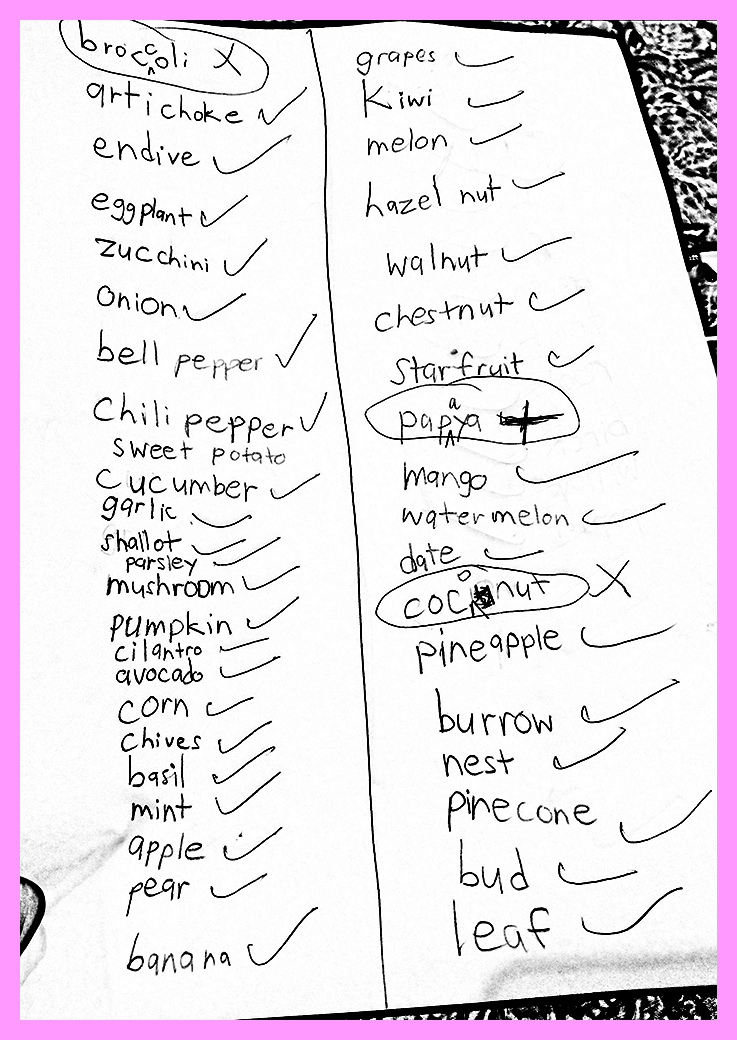 broccoli X
artichoke ✓
endive ✓
eggplant ✓
zucchini ✓
onion ✓
bell pepper ✓
chili pepper ✓
sweet potato
cucumber ✓
garlic ✓
shallot ✓
parsley ✓
mushroom ✓
pumpkin ✓
cilantro ✓
avocado ✓
corn ✓
chives ✓
basil ✓
mint ✓
apple ✓
pear ✓
banana ✓
grapes ✓
Kiwi ✓
melon ✓
hazel nut ✓
walnut ✓
chestnut ✓
starfruit ✓
papaya +
mango ✓
watermelon ✓
date ✓
coconut X
pineapple ✓
burrow ✓
nest ✓
pinecone ✓
bud ✓
leaf ✓